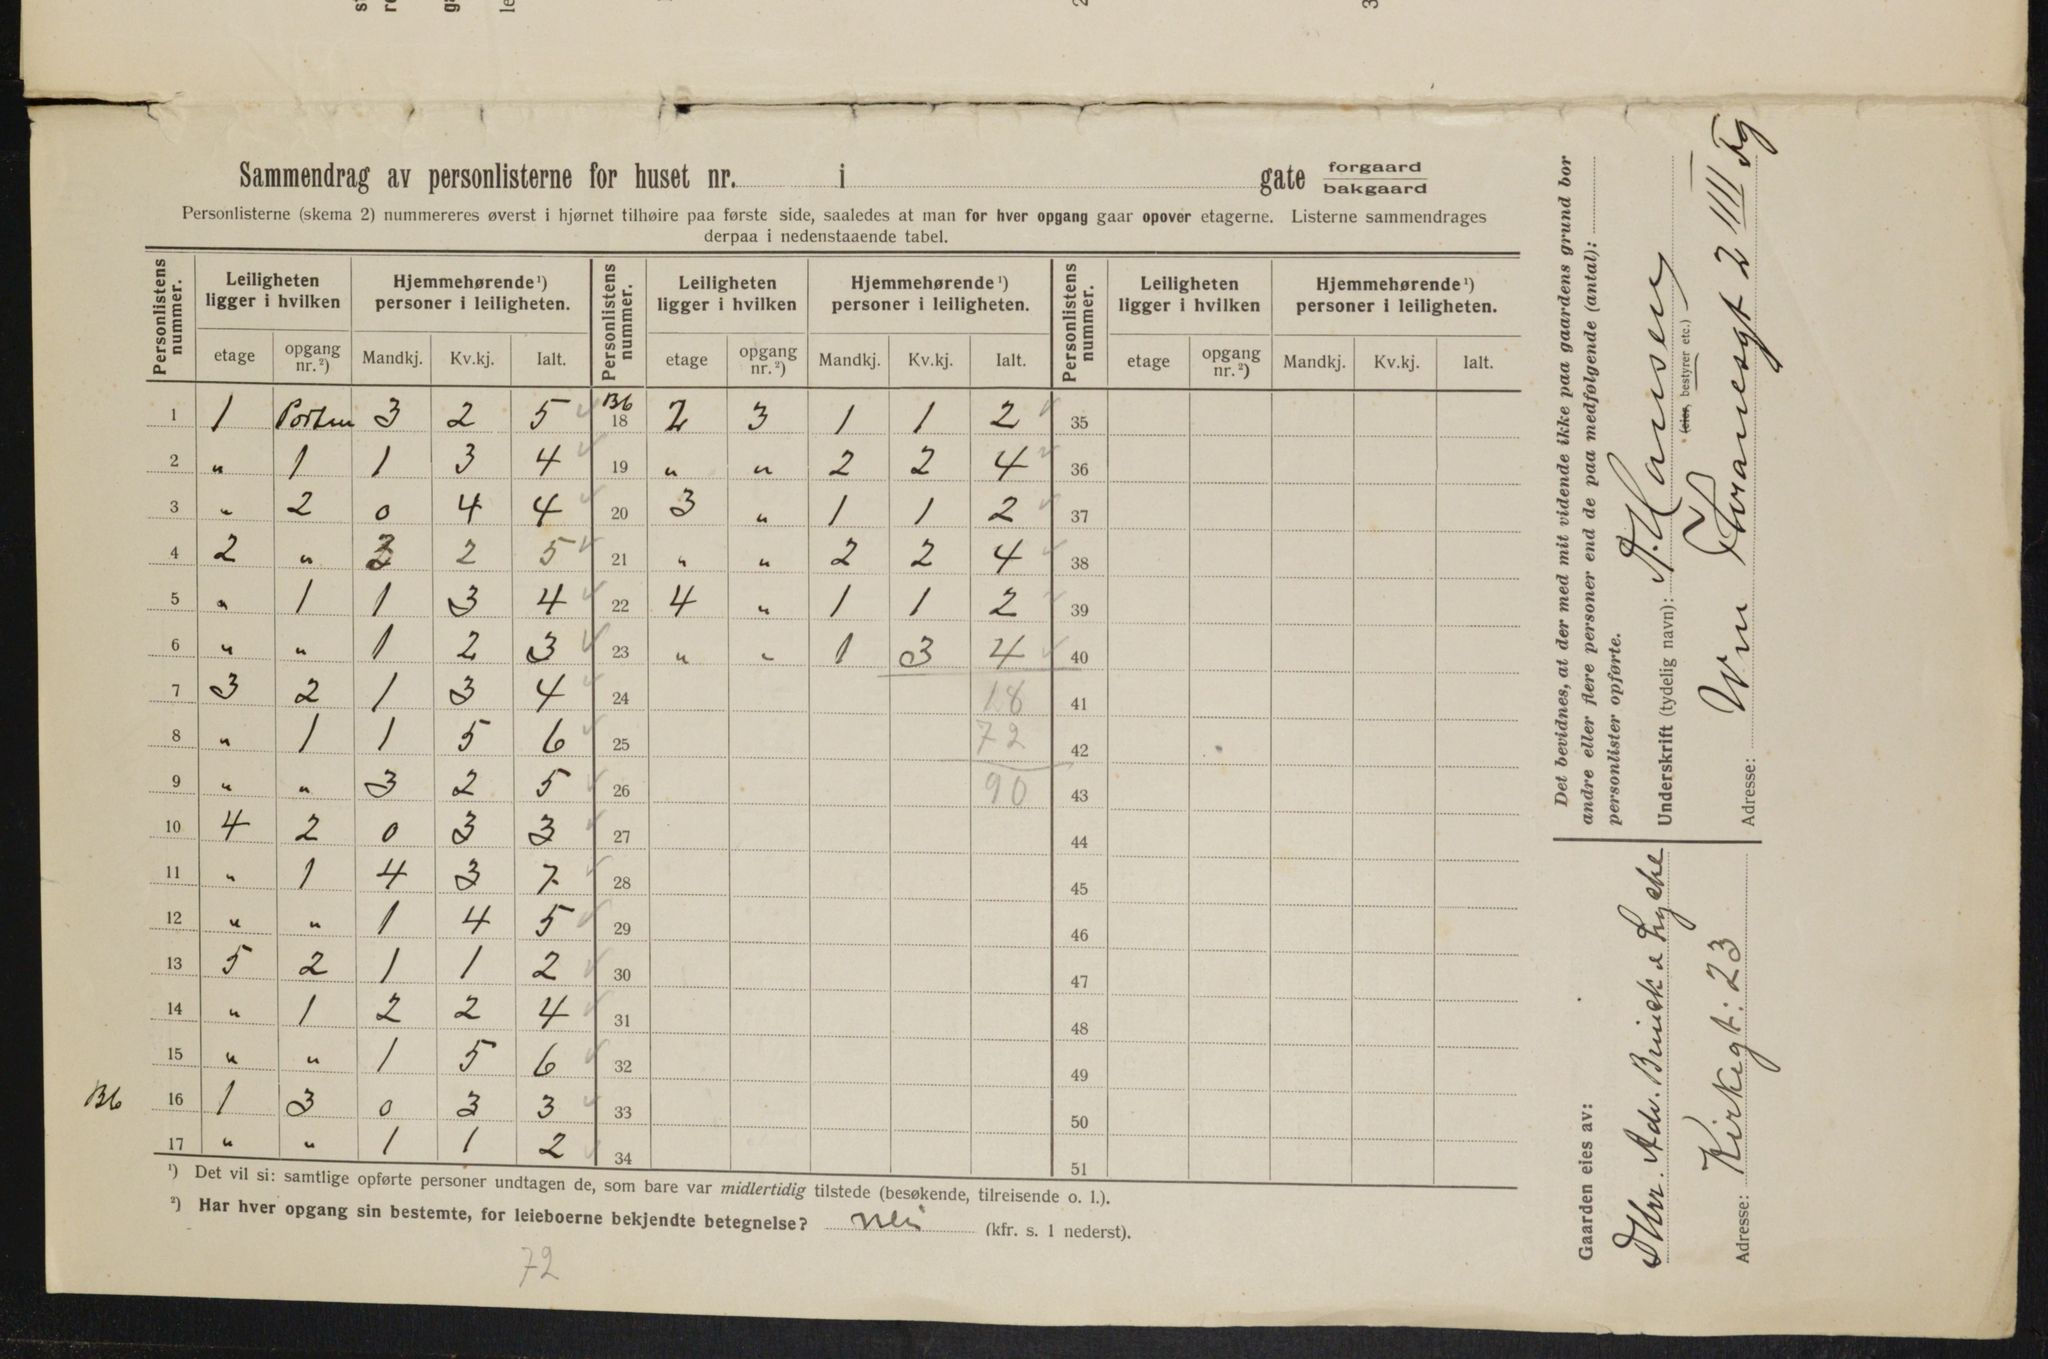 Sammendrag av personlisterne for huset nr. i gate forgaard bakgaard
Personlisterne (skema 2) nummereres øverst i hjørnet tilhøire paa første side, saaledes at man for hver opgang gaar opover etagerne. Listerne sammendrages
derpaa i nedenstaaende tabel.
Personlistens nummer. Leiligheten ligger i hvilken Hjemmehørende¹) personer i leiligheten. Personlistens nummer. Leiligheten ligger i hvilken Hjemmehørende¹) personer i leiligheten. Personlistens nummer. Leiligheten ligger i hvilken Hjemmehørende¹) personer i leiligheten.
etage opgang nr.²) Mandkj. Kv.kj. Ialt. etage opgang nr.²) Mandkj. Kv.kj. Ialt. etage opgang nr.²) Mandkj. Kv.kj. Ialt.
1 1 Porten 3 2 5 Bb 18 2 3 1 1 2 35
2 " 1 1 3 4 19 " " 2 2 4 36
3 " 2 0 4 4 20 3 " 1 1 2 37
4 2 " 3 2 5 21 " " 2 2 4 38
5 " 1 1 3 4 22 4 " 1 1 2 39
6 " " 1 2 3 23 " " 1 3 4 40
7 3 2 1 3 4 24 18 41
8 " 1 1 5 6 25 72 42
9 " " 3 2 5 26 90 43
10 4 2 0 3 3 27 44
11 " 1 4 3 7 28 45
12 " " 1 4 5 29 46
13 5 2 1 1 2 30 47
14 " 1 2 2 4 31 48
15 " " 1 5 6 32 49
Bb 16 1 3 0 3 3 33 50
17 " " 1 1 2 34 51
¹) Det vil si: samtlige opførte personer undtagen de, som bare var midlertidig tilstede (besøkende, tilreisende o. l.).
²) Har hver opgang sin bestemte, for leieboerne bekjendte betegnelse? Nei (kfr. s. 1 nederst).
72
Det bevidnes, at der med mit vidende ikke paa gaardens grund bor
andre eller flere personer end de paa medfølgende (antal):
personlister opførte.
Underskrift (tydelig navn): A. Hansen
(eier, bestyrer etc.)
Adresse: Vm Thranesgt 2 III
Gaarden eies av:
Dhrr. Adv.
Adresse: Kirkegt. 23